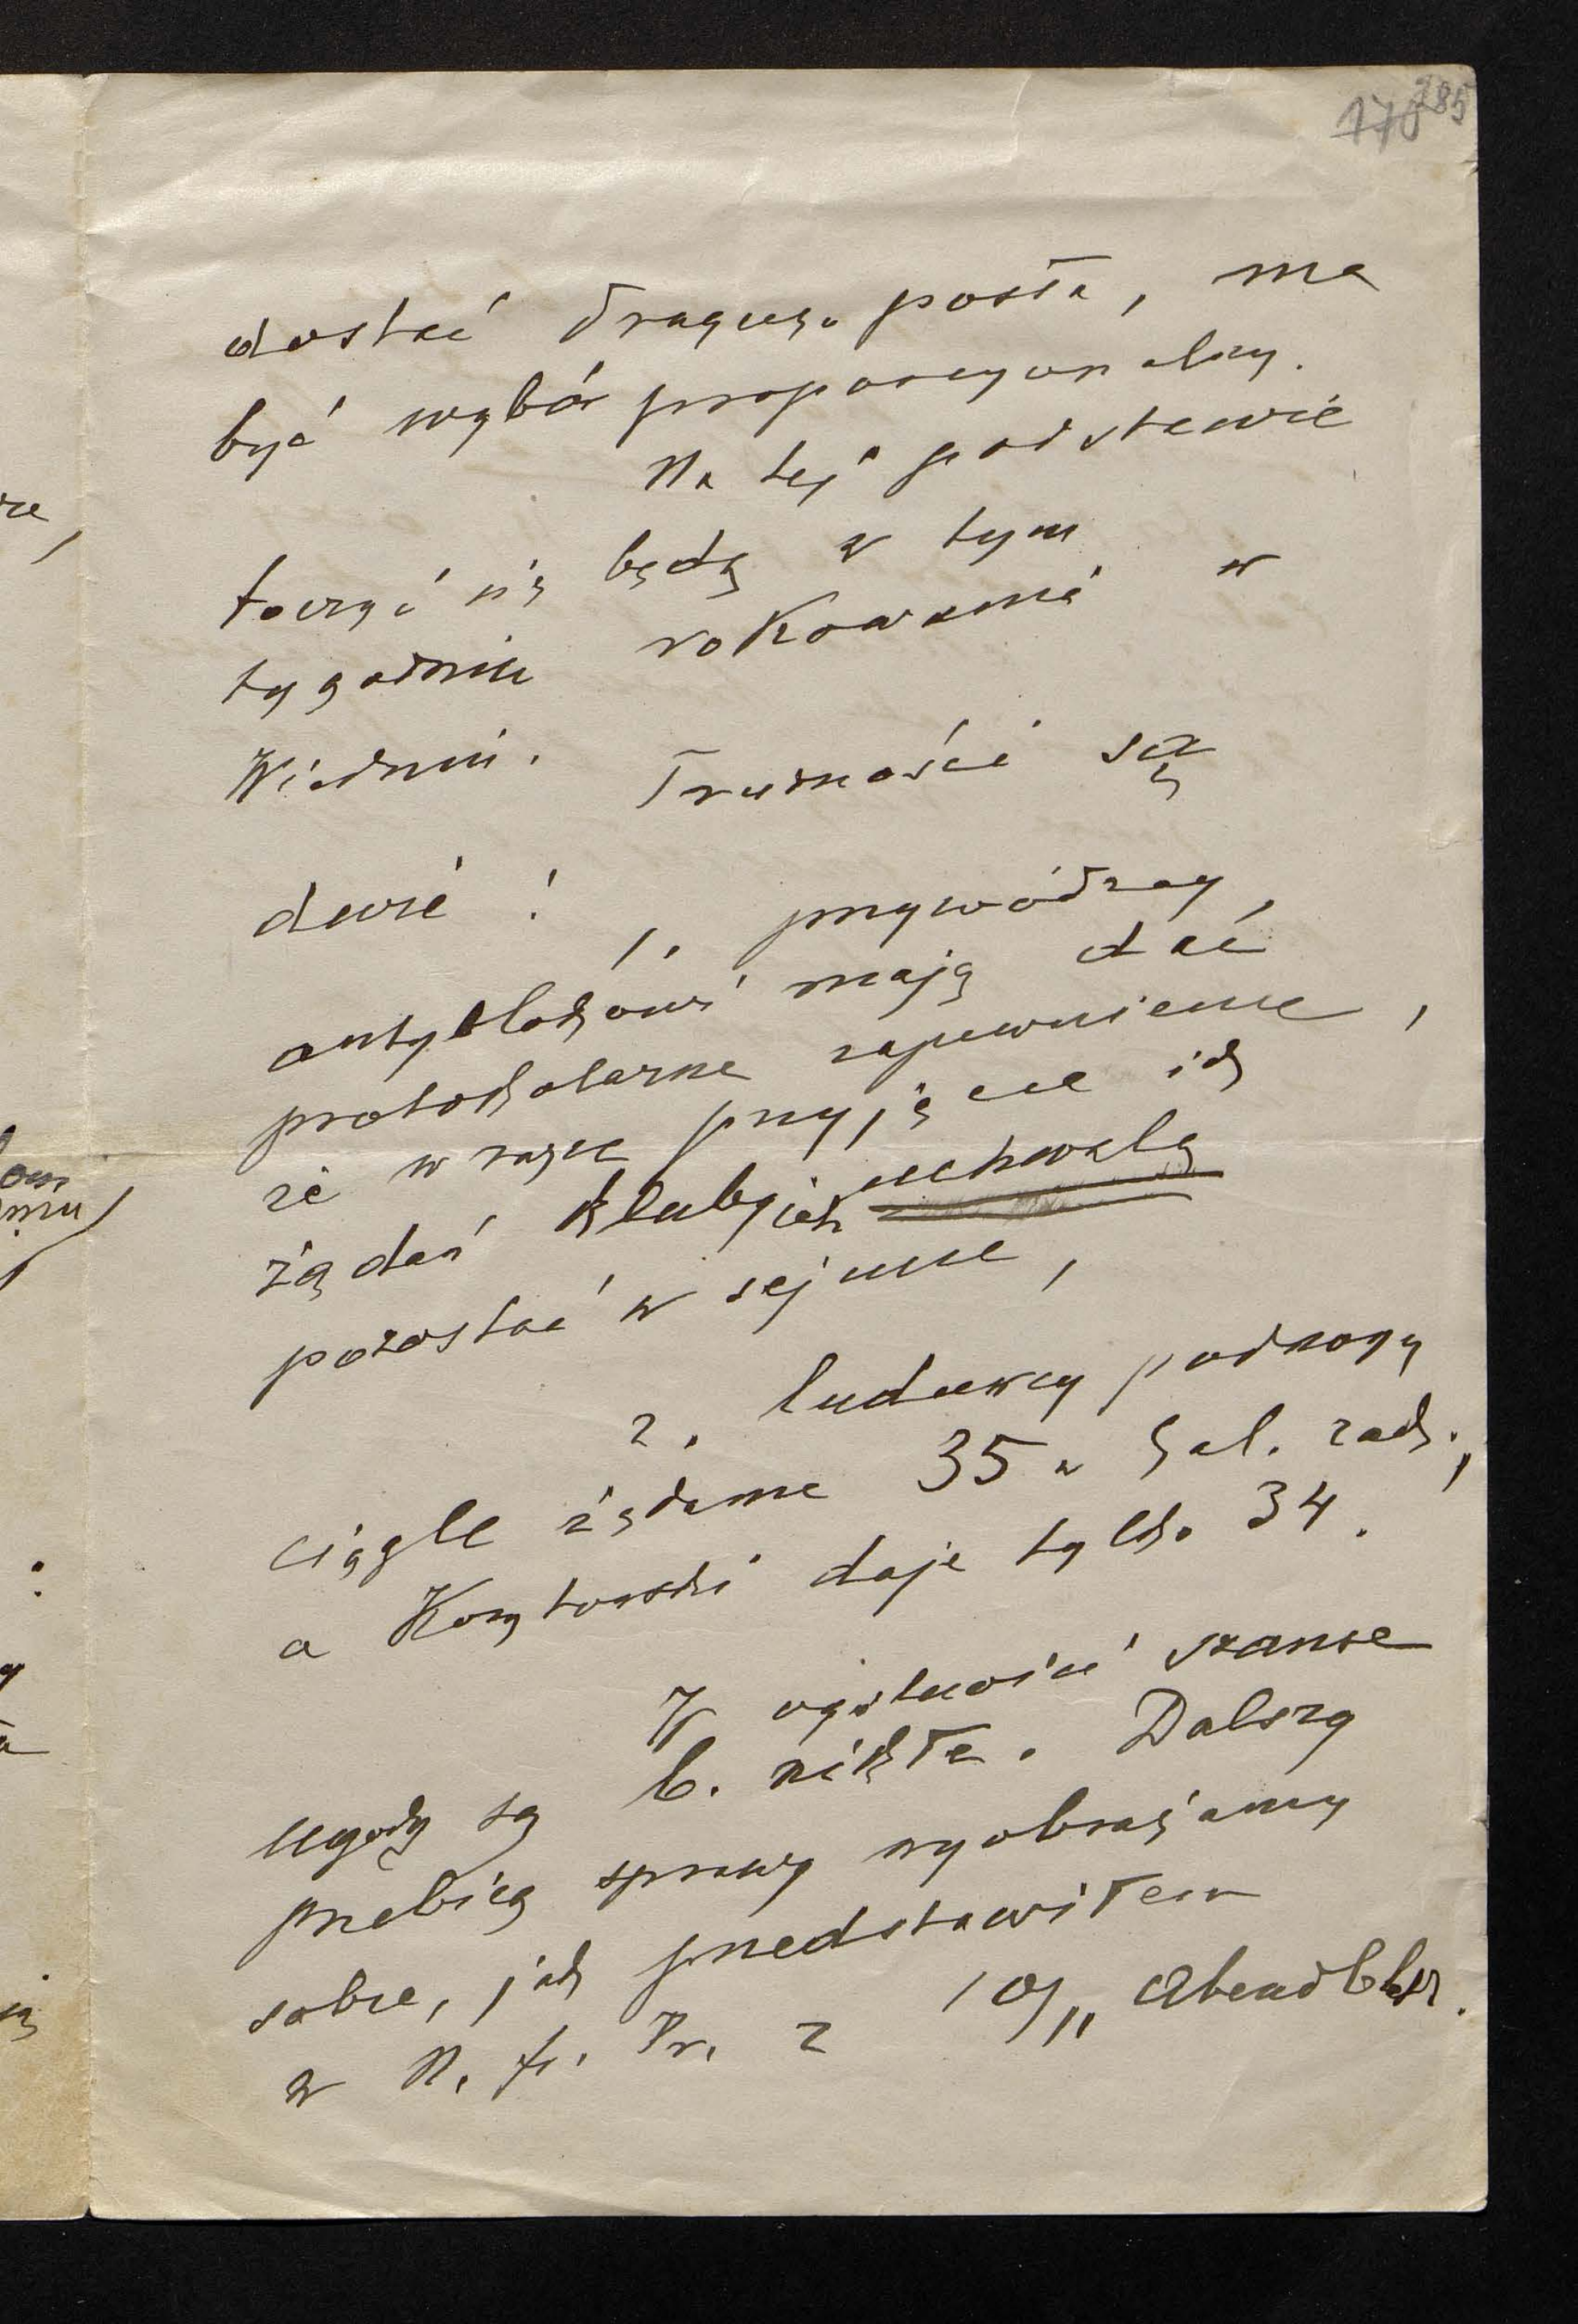 176 285
dostać drugiego posła, ma
być wybór proporcyonalny.
Na tej podstawie
toczyć się będą w tym
tygodniu rokowania w
Wiedniu. Trudności są
dwie: 1. przywódzcy
antyblokowi mają dać
protokolarne zapewnienie,
że w razie przyjęcia ich
żądań kluby ich uchwalą
pozostać w sejmie,
2. ludowcy podnoszą
ciągle żądanie 35 w Gal. zach.,
a Korytowski daje tylko 34.
W ogólności szanse
ugody są b. nikłe. Dalszy
przebieg sprawy wyobrażamy
sobie, jak przedstawiłem
w N. fr. Pr. z 10/11 Abendbl.